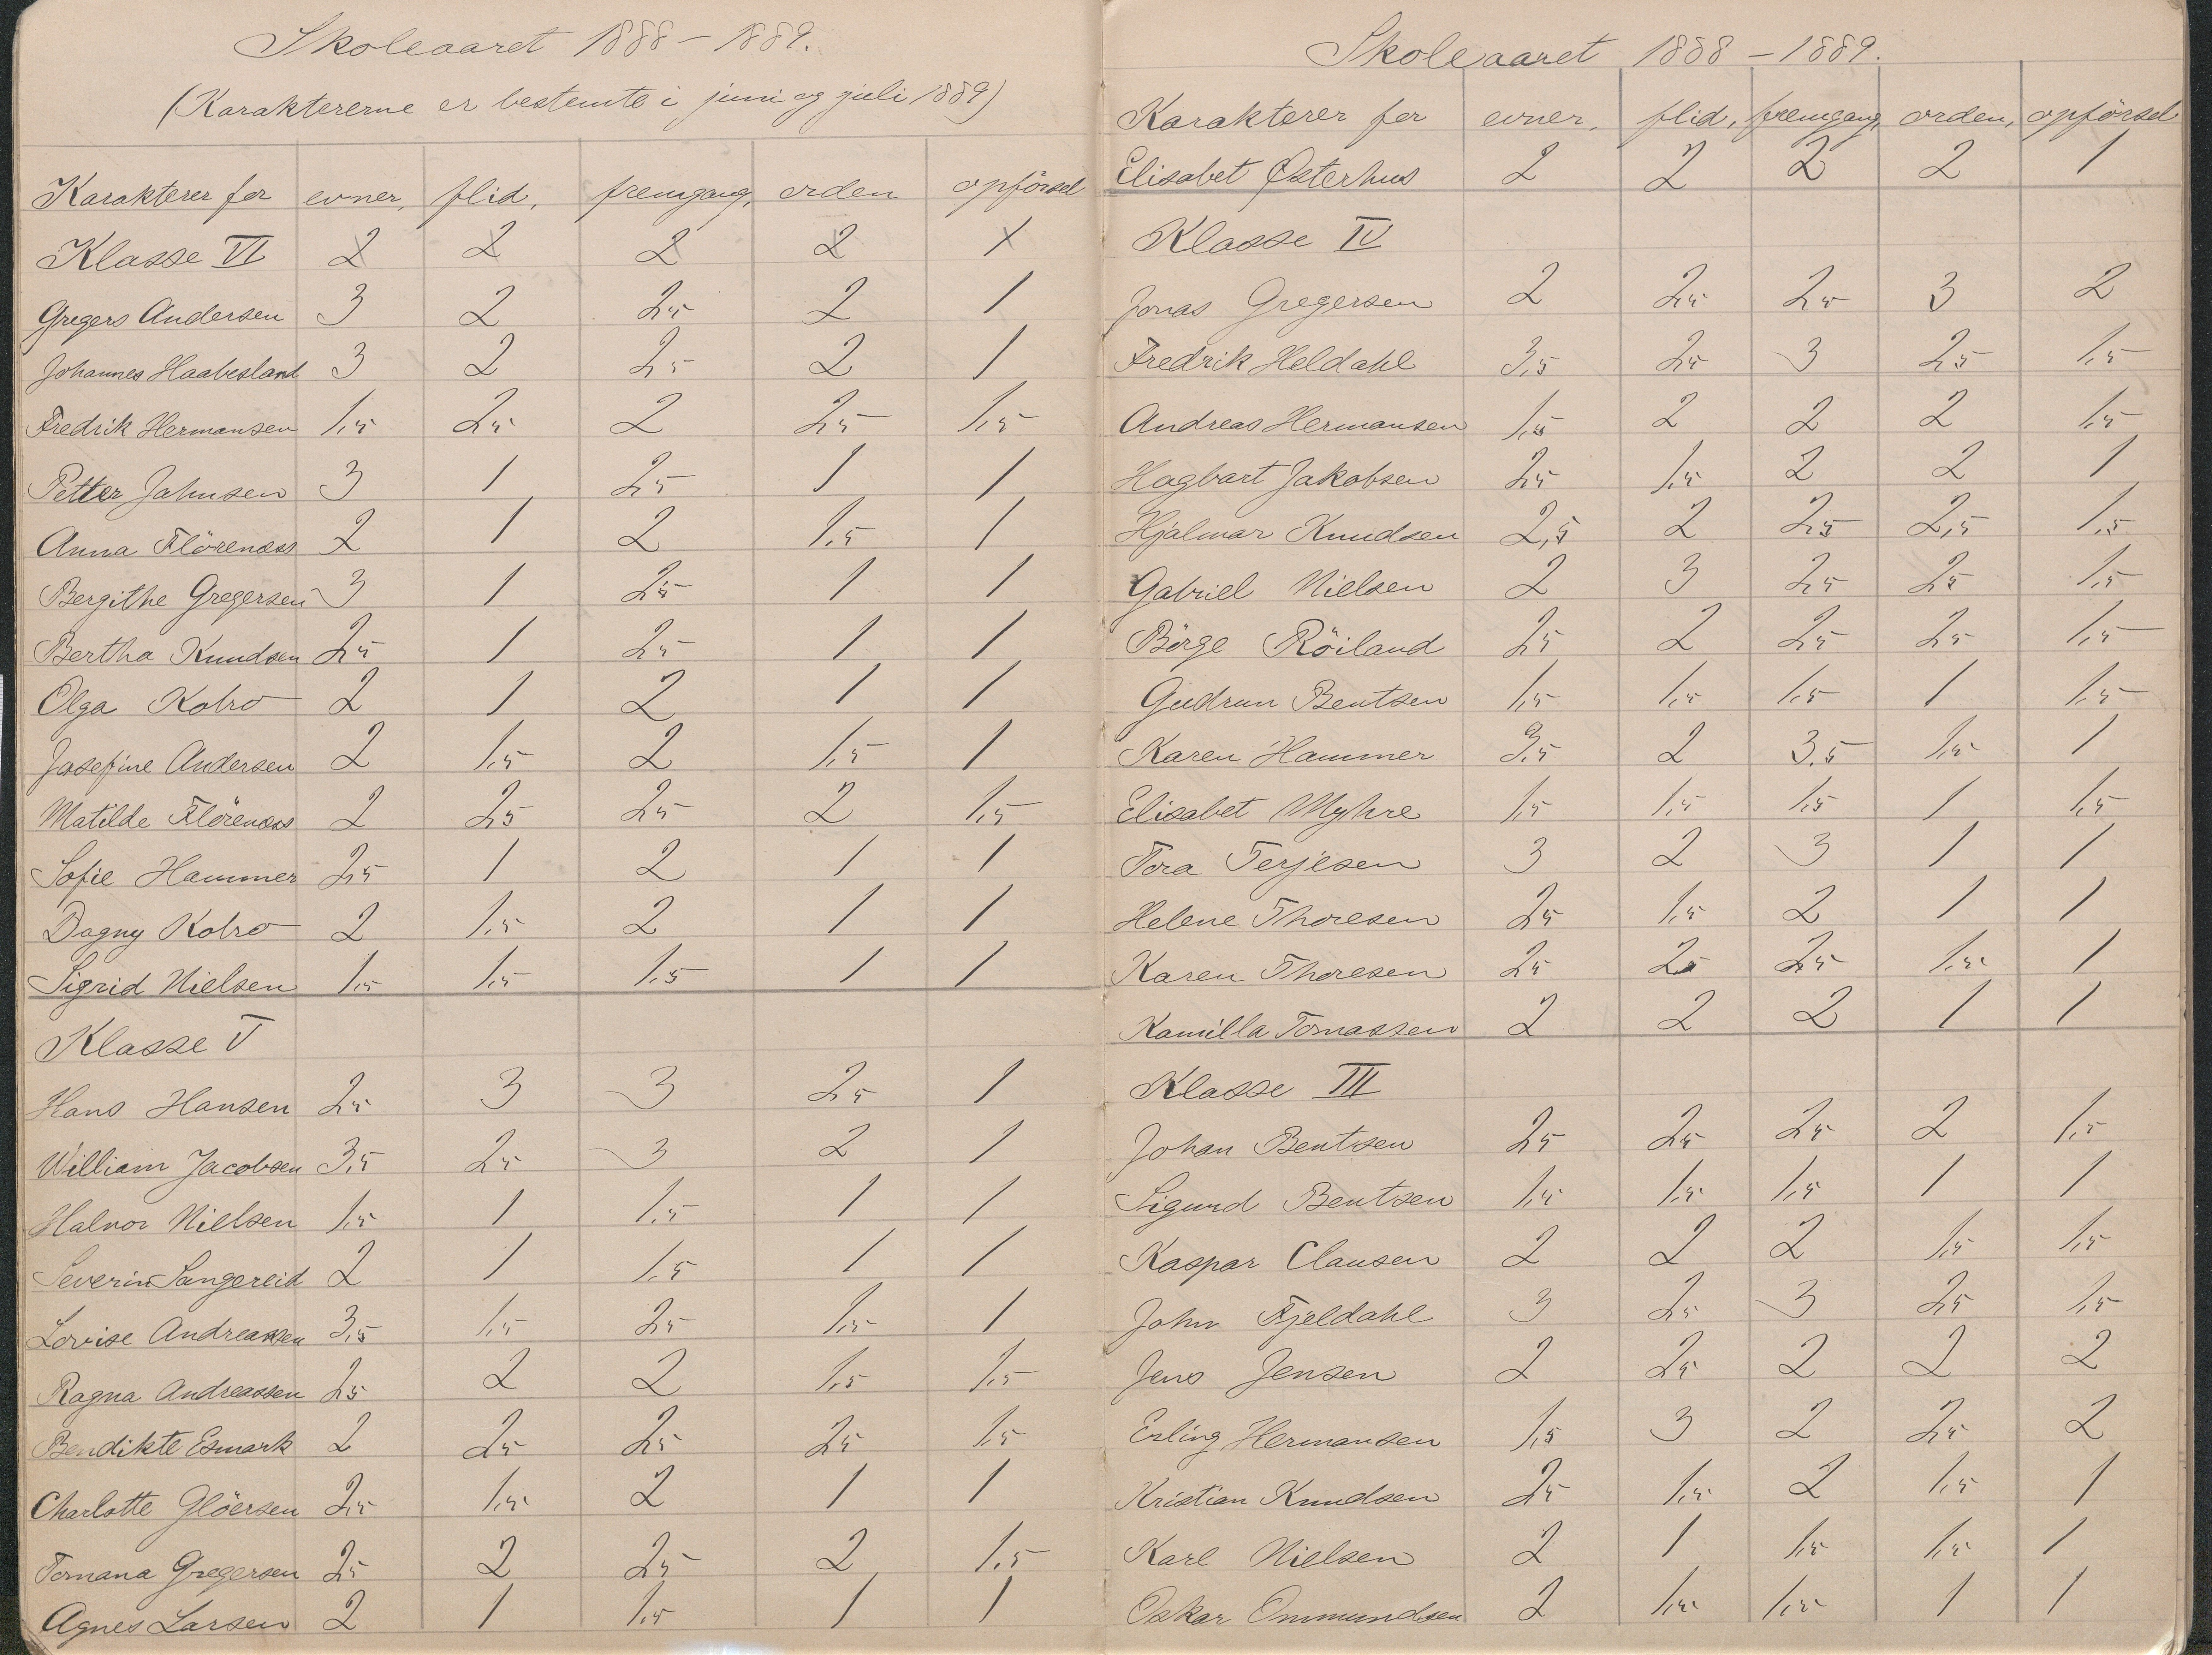 Skoleaaret 1888 – 1889.
(Karaktererne er bestemte i juni og juli 1889)
Karakterer for evner, flid, fremgang, orden opförsel
Klasse VI 2 2 2 2 1
Gregers Andersen 3 2 2,5 2 1
Johannes Haabesland 3 2 2,5 2 1
Fredrik Hermansen 1,5 2,5 2 2,5 1,5
Petter Jahnsen 3 1 2,5 1 1
Anna Flörenæs 2 1 2 1,5 1
Bergithe Gregersen 3 1 2,5 1 1
Bertha Knudsen 2,5 1 2,5 1 1
Olga Kolro 2 1 2 1 1
Josefine Andersen 2 1,5 2 1,5 1
Matilde Flörenæs 2 2,5 2,5 2 1,5
Sofie Hammer 2,5 1 2 1 1
Dagny Kolro 2 1,5 2 1 1
Sigrid Nielsen 1,5 1,5 1,5 1 1
Klasse V
Hans Hansen 2,5 3 3 2,5 1
William Jacobsen 3,5 2,5 3 2 1
Halvor Nielsen 1,5 1 1,5 1 1
Severin Sangereid 2 1 1,5 1 1
Lovise Andreassen 3,5 1,5 2,5 1,5 1
Ragna Andreassen 2,5 2 2 1,5 1,5
Bendikte Esmark 2 2,5 2,5 2,5 1,5
Charlotte Glöersen 2,5 1,5 2 1 1
Tomana Gregersen 2,5 2 2,5 2 1,5
Agnes Larsen 2 1 1,5 1 1
Skoleaaret 1888 – 1889.
Karakterer for evner, flid, fremgang, orden, opförsel
Elisabet Østerhus 2 2 2 2 1
Klasse IV
Jonas Gregersen 2 2,5 2,5 3 2
Fredrik Heldahl 3,5 2,5 3 2,5 1,5
Andreas Hermansen 1,5 2 2 2 1,5
Hagbart Jakobsen 2,5 1,5 2 2 1
Hjalmar Knudsen 2,5 2 2,5 2,5 1,5
Gabriel Nielsen 2 3 2,5 2,5 1,5
Börge Röiland 2,5 2 2,5 2,5 1,5
Gudrun Bentsen 1,5 1,5 1,5 1 1,5
Karen Hammer 3,5 2 3,5 1,5 1
Elisabet Myhre 1,5 1,5 1,5 1 1,5
Tora Terjesen 3 2 3 1 1
Helene Thoresen 2,5 1,5 2 1 1
Karen Thoresen 2,5 2,5 2,5 1,5 1
Kamilla Tomassen 2 2 2 1 1
Klasse III
Johan Bentsen 2,5 2,5 2,5 2 1,5
Sigurd Bentsen 1,5 1,5 1,5 1 1
Kaspar Clausen 2 2 2 1,5 1,5
John Fjeldahl 3 2,5 3 2,5 1,5
Jens Jensen 2 2,5 2 2 2
Erling Hermansen 1,5 3 2 2,5 2
Kristian Knudsen 2,5 1,5 2 1,5 1
Karl Nielsen 2 1 1,5 1,5 1
Oskar Ommundsen 2 1,5 1,5 1 1